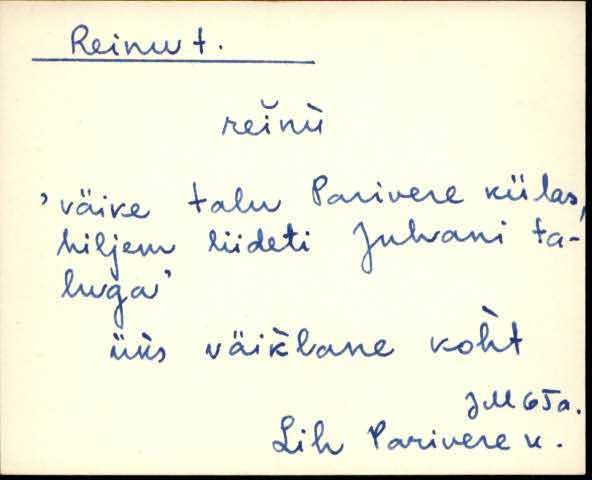 Reinu t.
reĭnù
'väike talu Parivere külas,
hiljem liideti Juhani ta-
luga'
üks väik̀lane koh̀t
JM 65a.
Lih Parivere k.